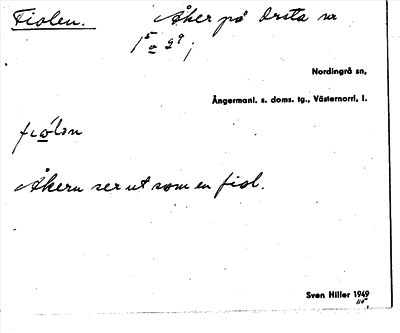 Fiolen. Åker på Örsta nr
1⁵ o 2⁹;
Nordingrå sn,
Ångermanl. s. doms. tg., Västernorrl. l.
fiolən
Åkern ser ut som en fiol.
Sven Hiller 1949